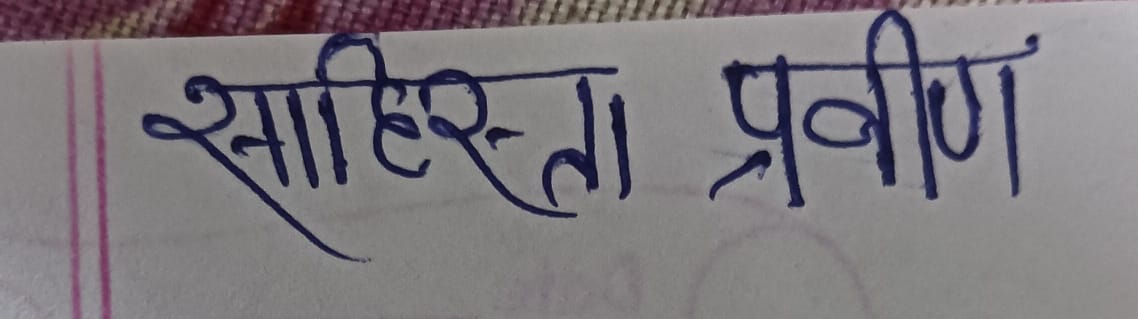 साहिस्ता प्रवीण